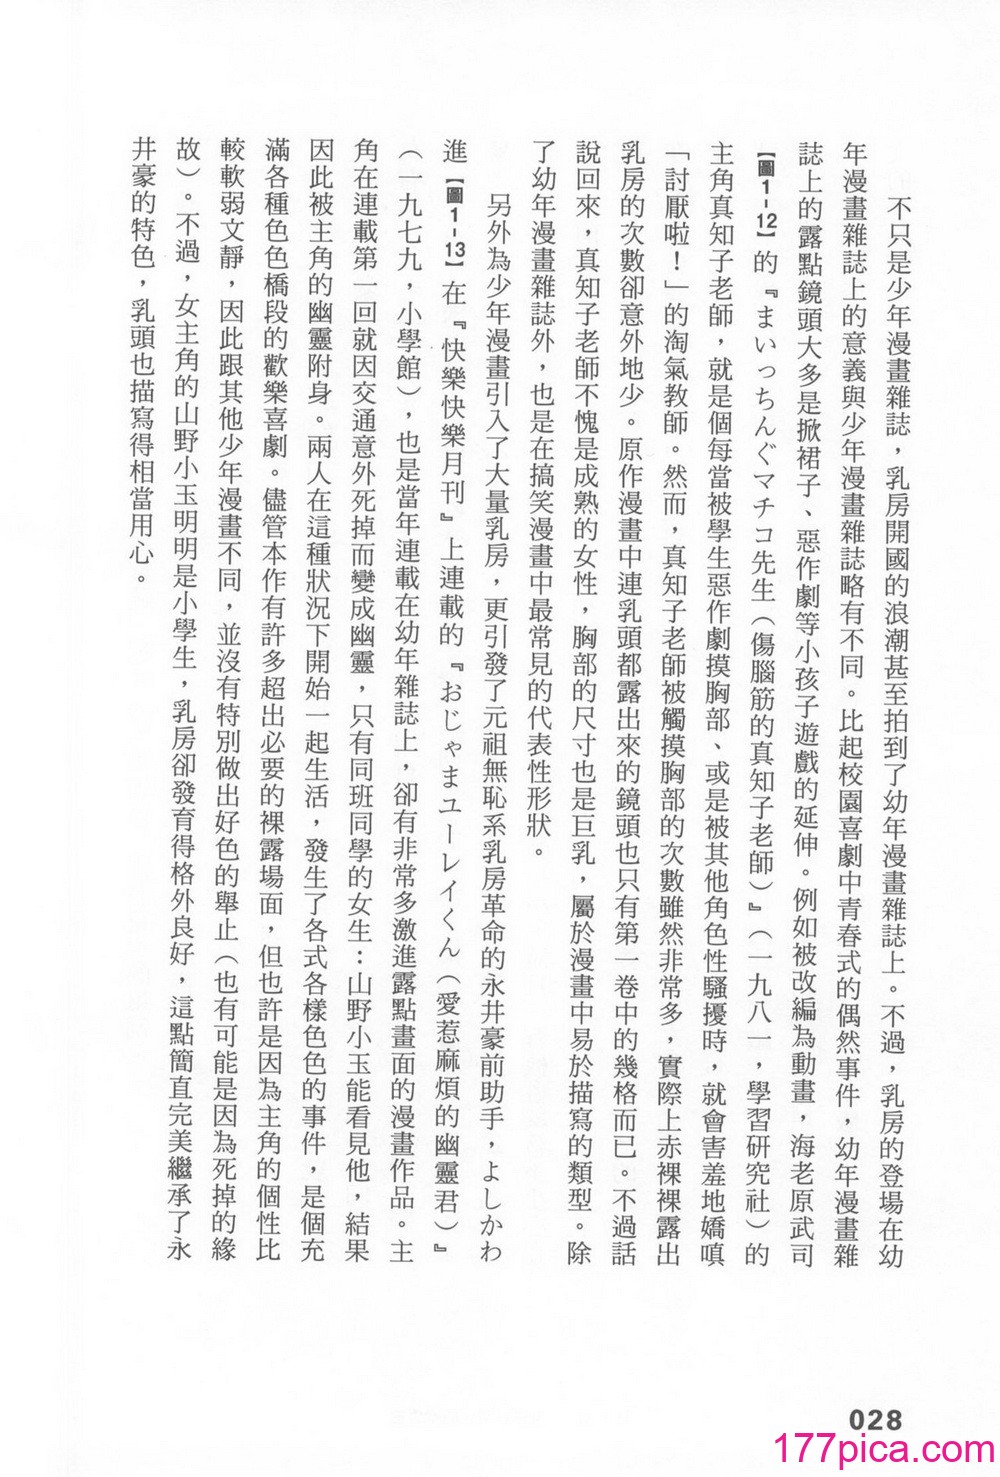 不只是少年漫畫雜誌，乳房開國的浪潮甚至拍到了幼年漫畫雜誌上。不過，乳房的登場在幼
年漫畫雜誌上的意義與少年漫畫雜誌略有不同。比起校園喜劇中青春式的偶然事件，幼年漫畫雜
誌上的露點鏡頭大多是掀裙子、惡作劇等小孩子遊戲的延伸。例如被改編為動畫，海老原武司
【圖1-12】的『まいっちんぐマチコ先生（傷腦筋的真知子老師）』（一九八一，學習研究社）的
主角真知子老師，就是個每當被學生惡作劇摸胸部、或是被其他角色性騷擾時，就會害羞地嬌嗔
「討厭啦！」的淘氣教師。然而，真知子老師被觸摸胸部的次數雖然非常多，實際上赤裸裸露出
乳房的次數卻意外地少。原作漫畫中連乳頭都露出來的鏡頭也只有第一卷中的幾格而已。不過話
說回來，真知子老師不愧是成熟的女性，胸部的尺寸也是巨乳，屬於漫畫中易於描寫的類型。除
了幼年漫畫雜誌外，也是在搞笑漫畫中最常見的代表性形狀。
另外為少年漫畫引入了大量乳房，更引發了元祖無恥系乳房革命的永井豪前助手，よしかわ
進【圖1-13】在『快樂快樂月刊』上連載的『おじゃまユーレイくん（愛惹麻煩的幽靈君）』
（一九七九，小學館），也是當年連載在幼年雜誌上，卻有非常多激進露點畫面的漫畫作品。主
角在連載第一回就因交通意外死掉而變成幽靈，只有同班同學的女生：山野小玉能看見他，結果
因此被主角的幽靈附身。兩人在這種狀況下開始一起生活，發生了各式各樣色色的事件，是個充
滿各種色色橋段的歡樂喜劇。儘管本作有許多超出必要的裸露場面，但也許是因為主角的個性比
較軟弱文靜，因此跟其他少年漫畫不同，並沒有特別做出好色的舉止（也有可能是因為死掉的緣
故）。不過，女主角的山野小玉明明是小學生，乳房卻發育得格外良好，這點簡直完美繼承了永
井豪的特色，乳頭也描寫得相當用心。
028
177pica.com